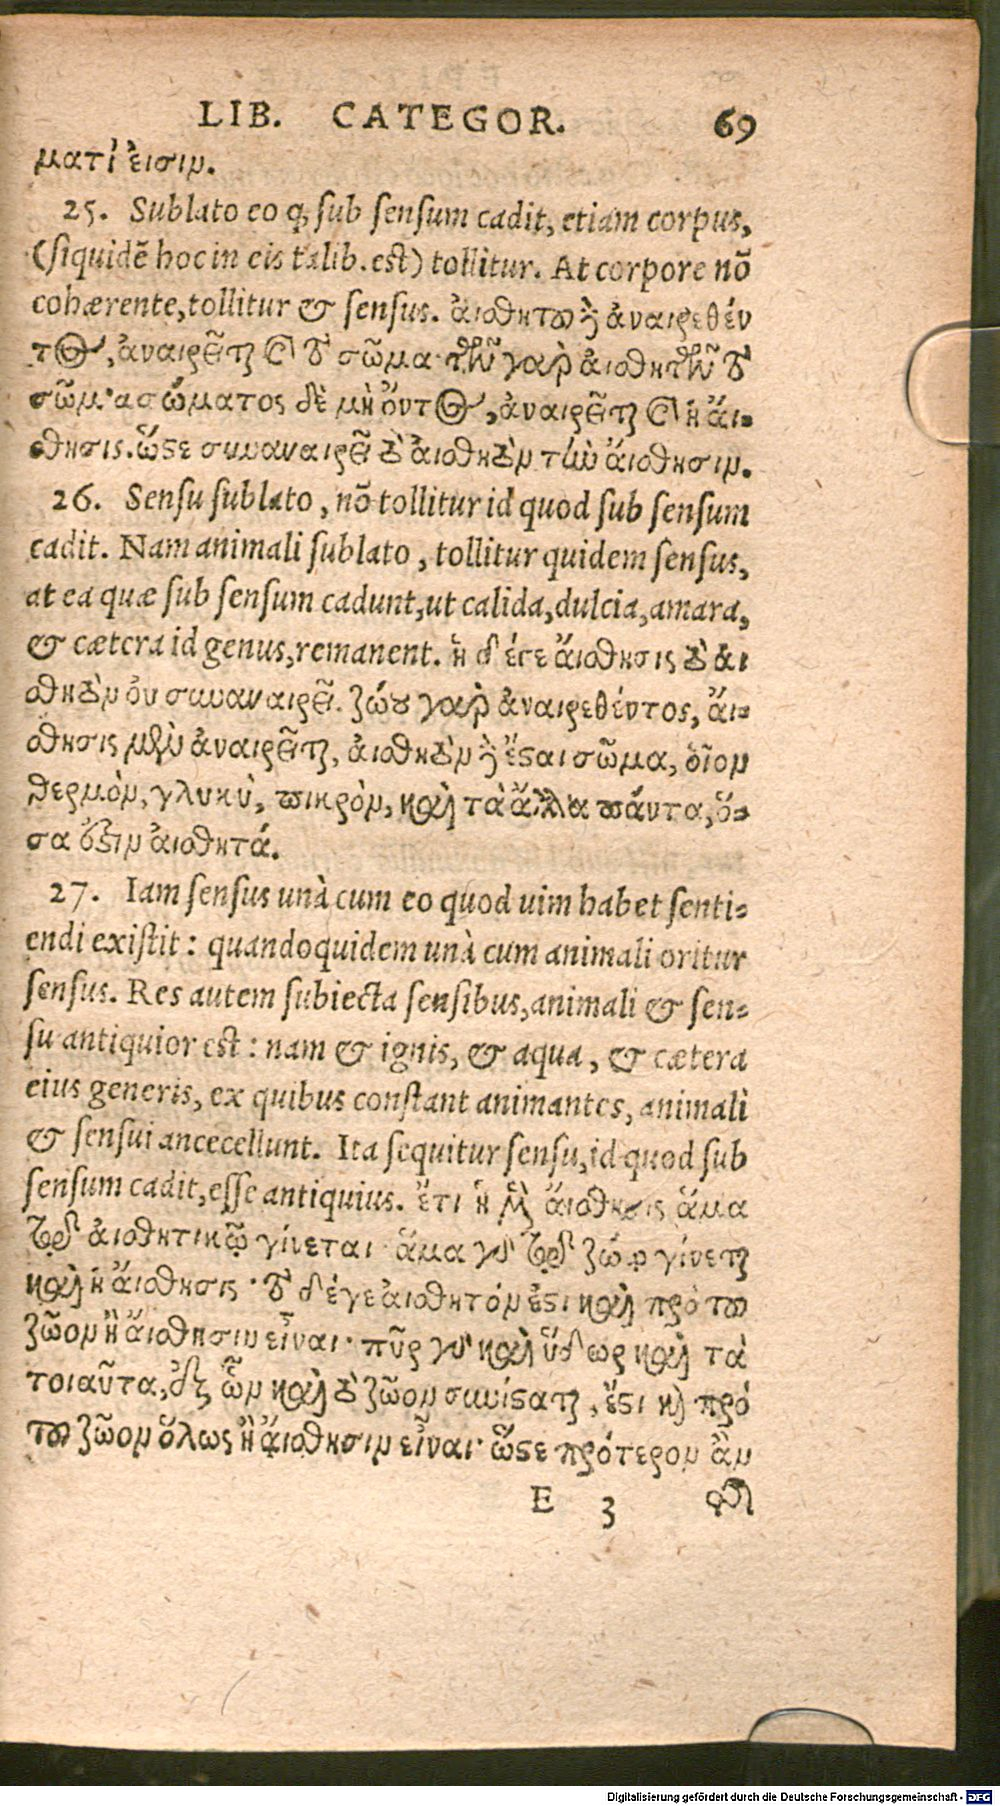 LIB. CATEGOR. 69
ματί εἰσιν.
25. Sublato eo q; sub sensum cadit, etiam corpus,
(siquidē hoc in eis talib. est) tollitur. At corpore nō
cohærente, tollitur & sensus. αἰσθητοῦ δὲ ἀναιρεθέν
τος, ἀναιρεῖται καὶ τὸ σῶμα· τῶν γὰρ αἰσθητῶν τὸ
σῶμα· σώματος δὲ μὴ ὄντος, ἀναιρεῖται καὶ ἡ αἴ-
σθησις. ὥστε συναναιρεῖ τὸ αἰσθητὸν τὴν αἴσθησιν.
26. Sensu sublato, nō tollitur id quod sub sensum
cadit. Nam animali sublato, tollitur quidem sensus,
at ea quæ sub sensum cadunt, ut calida, dulcia, amara,
& cætera id genus, remanent. ἡ δέ γε αἴσθησις τὸ αἰ
σθητὸν οὐ συναναιρεῖ. ζώου γὰρ ἀναιρεθέντος, αἴ-
σθησις μὲν ἀναιρεῖται, αἰσθητὸν δὲ ἔσται σῶμα, οἷον
θερμὸν, γλυκὺ, πικρὸν, καὶ τὰ ἄλλα πάντα, ὅ-
σα ἐστὶν αἰσθητά.
27. Iam sensus unà cum eo quod uim habet senti-
endi existit: quandoquidem unà cum animali oritur
sensus. Res autem subiecta sensibus, animali & sen-
su antiquior est: nam & ignis, & aqua, & cætera
eius generis, ex quibus constant animantes, animali
& sensui ancecellunt. Ita sequitur sensu, id quod sub
sensum cadit, esse antiquius. ἔτι ἡ μὲν αἴσθησις ἅμα
τῷ αἰσθητικῷ γίνεται· ἅμα γὰρ τῷ ζώῳ γίνεται
καὶ ἡ αἴσθησις· τὸ δέ γε αἰσθητόν ἐστι καὶ πρὸ τοῦ
ζῶον ἢ αἴσθησιν εἶναι· πῦρ γὰρ καὶ ὕδωρ καὶ τὰ
τοιαῦτα, ἐξ ὧν καὶ τὸ ζῶον συνίσταται, ἔστι καὶ πρὸ
τοῦ ζῶον ὅλως ἢ αἴσθησιν εἶναι· ὥστε πρότερον ἂν
E 3